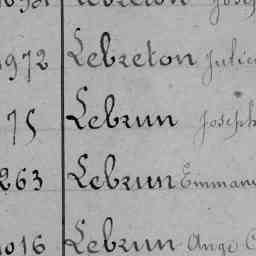 Lebreton Josep
972 Lebreton Julie
75 Lebrun Joseph
263 Lebrun Emmanu
1016 Lebrun Ange